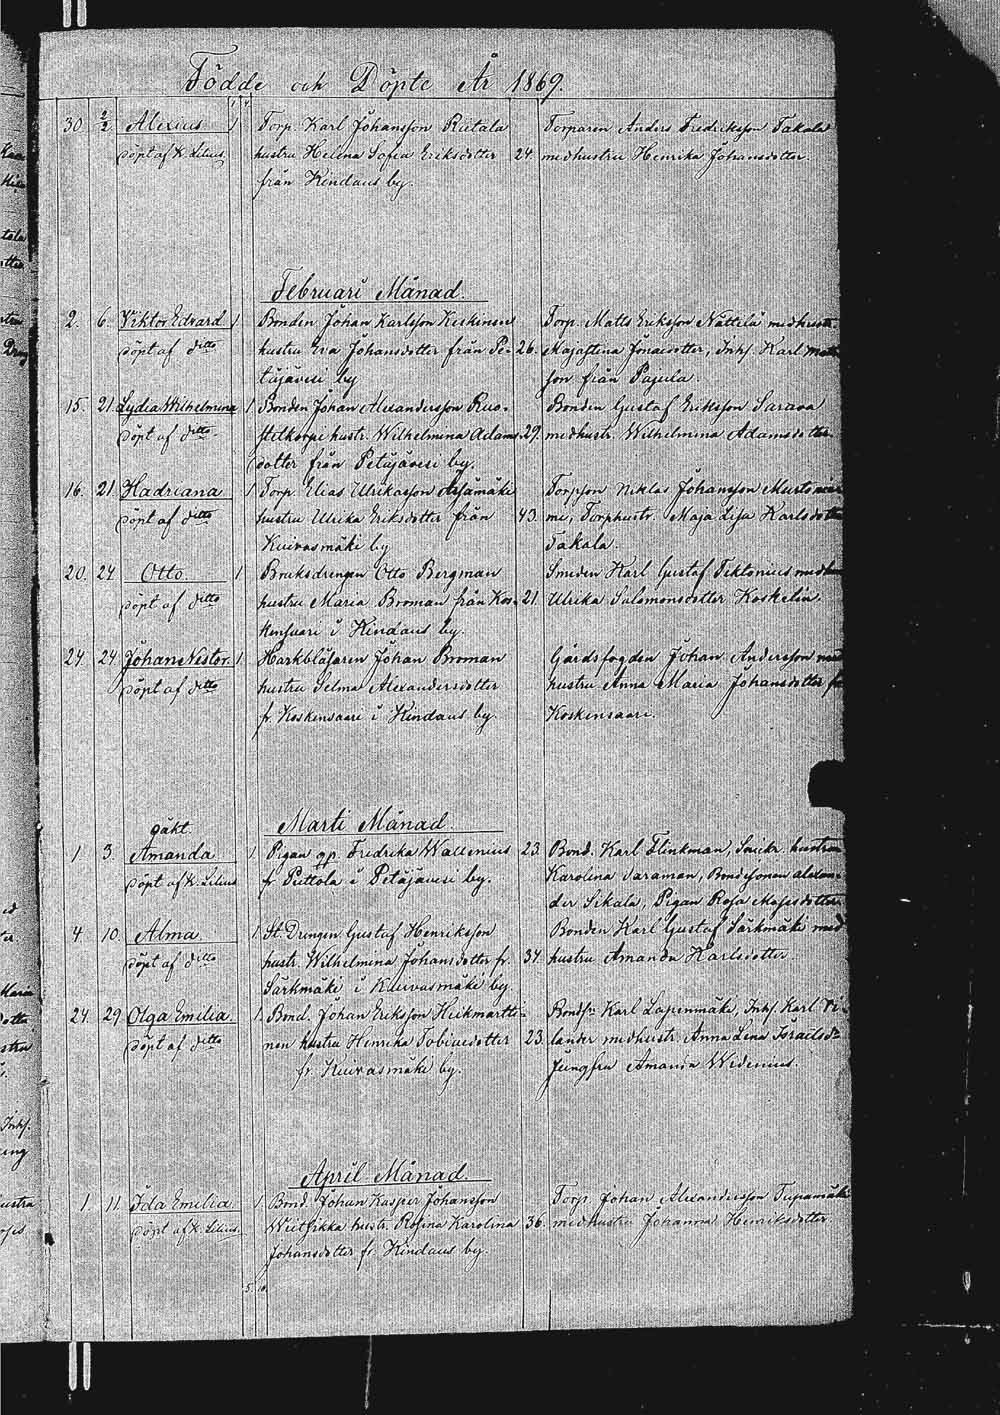 Födde och Döpte År 1869.
30 2/2 Alexius 1 Torp. Karl Johansson Rietala Torparen Anders Fredriksson Takala
döpt af K. Lilius hustru Helena Sofia Eriksdotter 24. med hustru Henrika Johansdotter.
från Kindaus by.
Februari Månad.
2. 6. Viktor Edvard 1 Bonden Johan Karlsson Keskinen Torp. Matts Eriksson Nättilä med hustr.
döpt af ditto hustru Eva Johansdotter från Pe- 26. Majastina Jonaedotter, Inhs. Karl
täjävesi by son från Pajula.
15. 21. Lydia Wilhelmina 1 Bonden Johan Alexandersson Ruo- Bonden Gustaf Eriksson Sarava
döpt af ditto hustr. Wilhelmina Adams- 29. med hustr. Wilhelmina Adamsdotter.
dotter från Petäjävesi by.
16. 21. Hadriana 1 Torp. Elias Ulriksson Torpson Niklas Johansson
döpt af ditto hustru Ulrika Eriksdotter från 43. Torphustr. Maja Lisa Karlsdotter
Kuivasmäki by Takala.
20. 24 Otto. 1 Bruksdrengen Otto Bergman Smeden Karl Gustaf Tiktonius med
döpt af ditto hustru Maria Broman från Kos- 21. Ulrika Salomonsdotter Koskelin.
kensaari i Kindaus by.
24. 24. Johan Nestor. 1 Harkblåsaren Johan Broman Gårdsfogden Johan Andersson med
döpt af ditto hustru Selma Alexandersdotter hustru Anna Maria Johansdotter fr
fr. Koskensaari i Kindaus by. Koskensaari.
Marti Månad.
oäkt.
1 3. Amanda 1 Pigan Fredrika Wallenius 23. Bond. Karl Flinkman, hustrun
döpt af K. Lilius fr Puttola i Petäjävesi by. Karolina Saraman, Bondesonen Alexan-
der Sikala, Pigan Rosa Mosesdotter
4. 10. Alma. 1 St. Drengen Gustaf Henriksson Bonden Karl Gustaf Särkmäki med
döpt af ditto hustr. Wilhelmina Johansdotter fr. 34. hustru Amanda Karlsdotter.
Särkmäki i Kuivasmäki by
24 29. Olga Emilia. 1 Bond. Johan Eriksson Heikmartti- Bonds. Karl Lapinmäki, Inhs. Karl Vi-
döpt af ditto nen hustru Henrika Tobiaedotter 23. lander med hustr. Anna Lena Israelsd.
fr. Kuivasmäki by. Jungfru Amanda Widenius.
April Månad.
1. 11. Ida Emilia 1 Bond. Johan Kasper Johansson Torp. Johan Alexandersson Tupamäki
döpt af K. Lilius. hustr. Rosina Karolina 36. med hustru Johanna Henriksdotter
Johansdotter fr. Kindaus by.